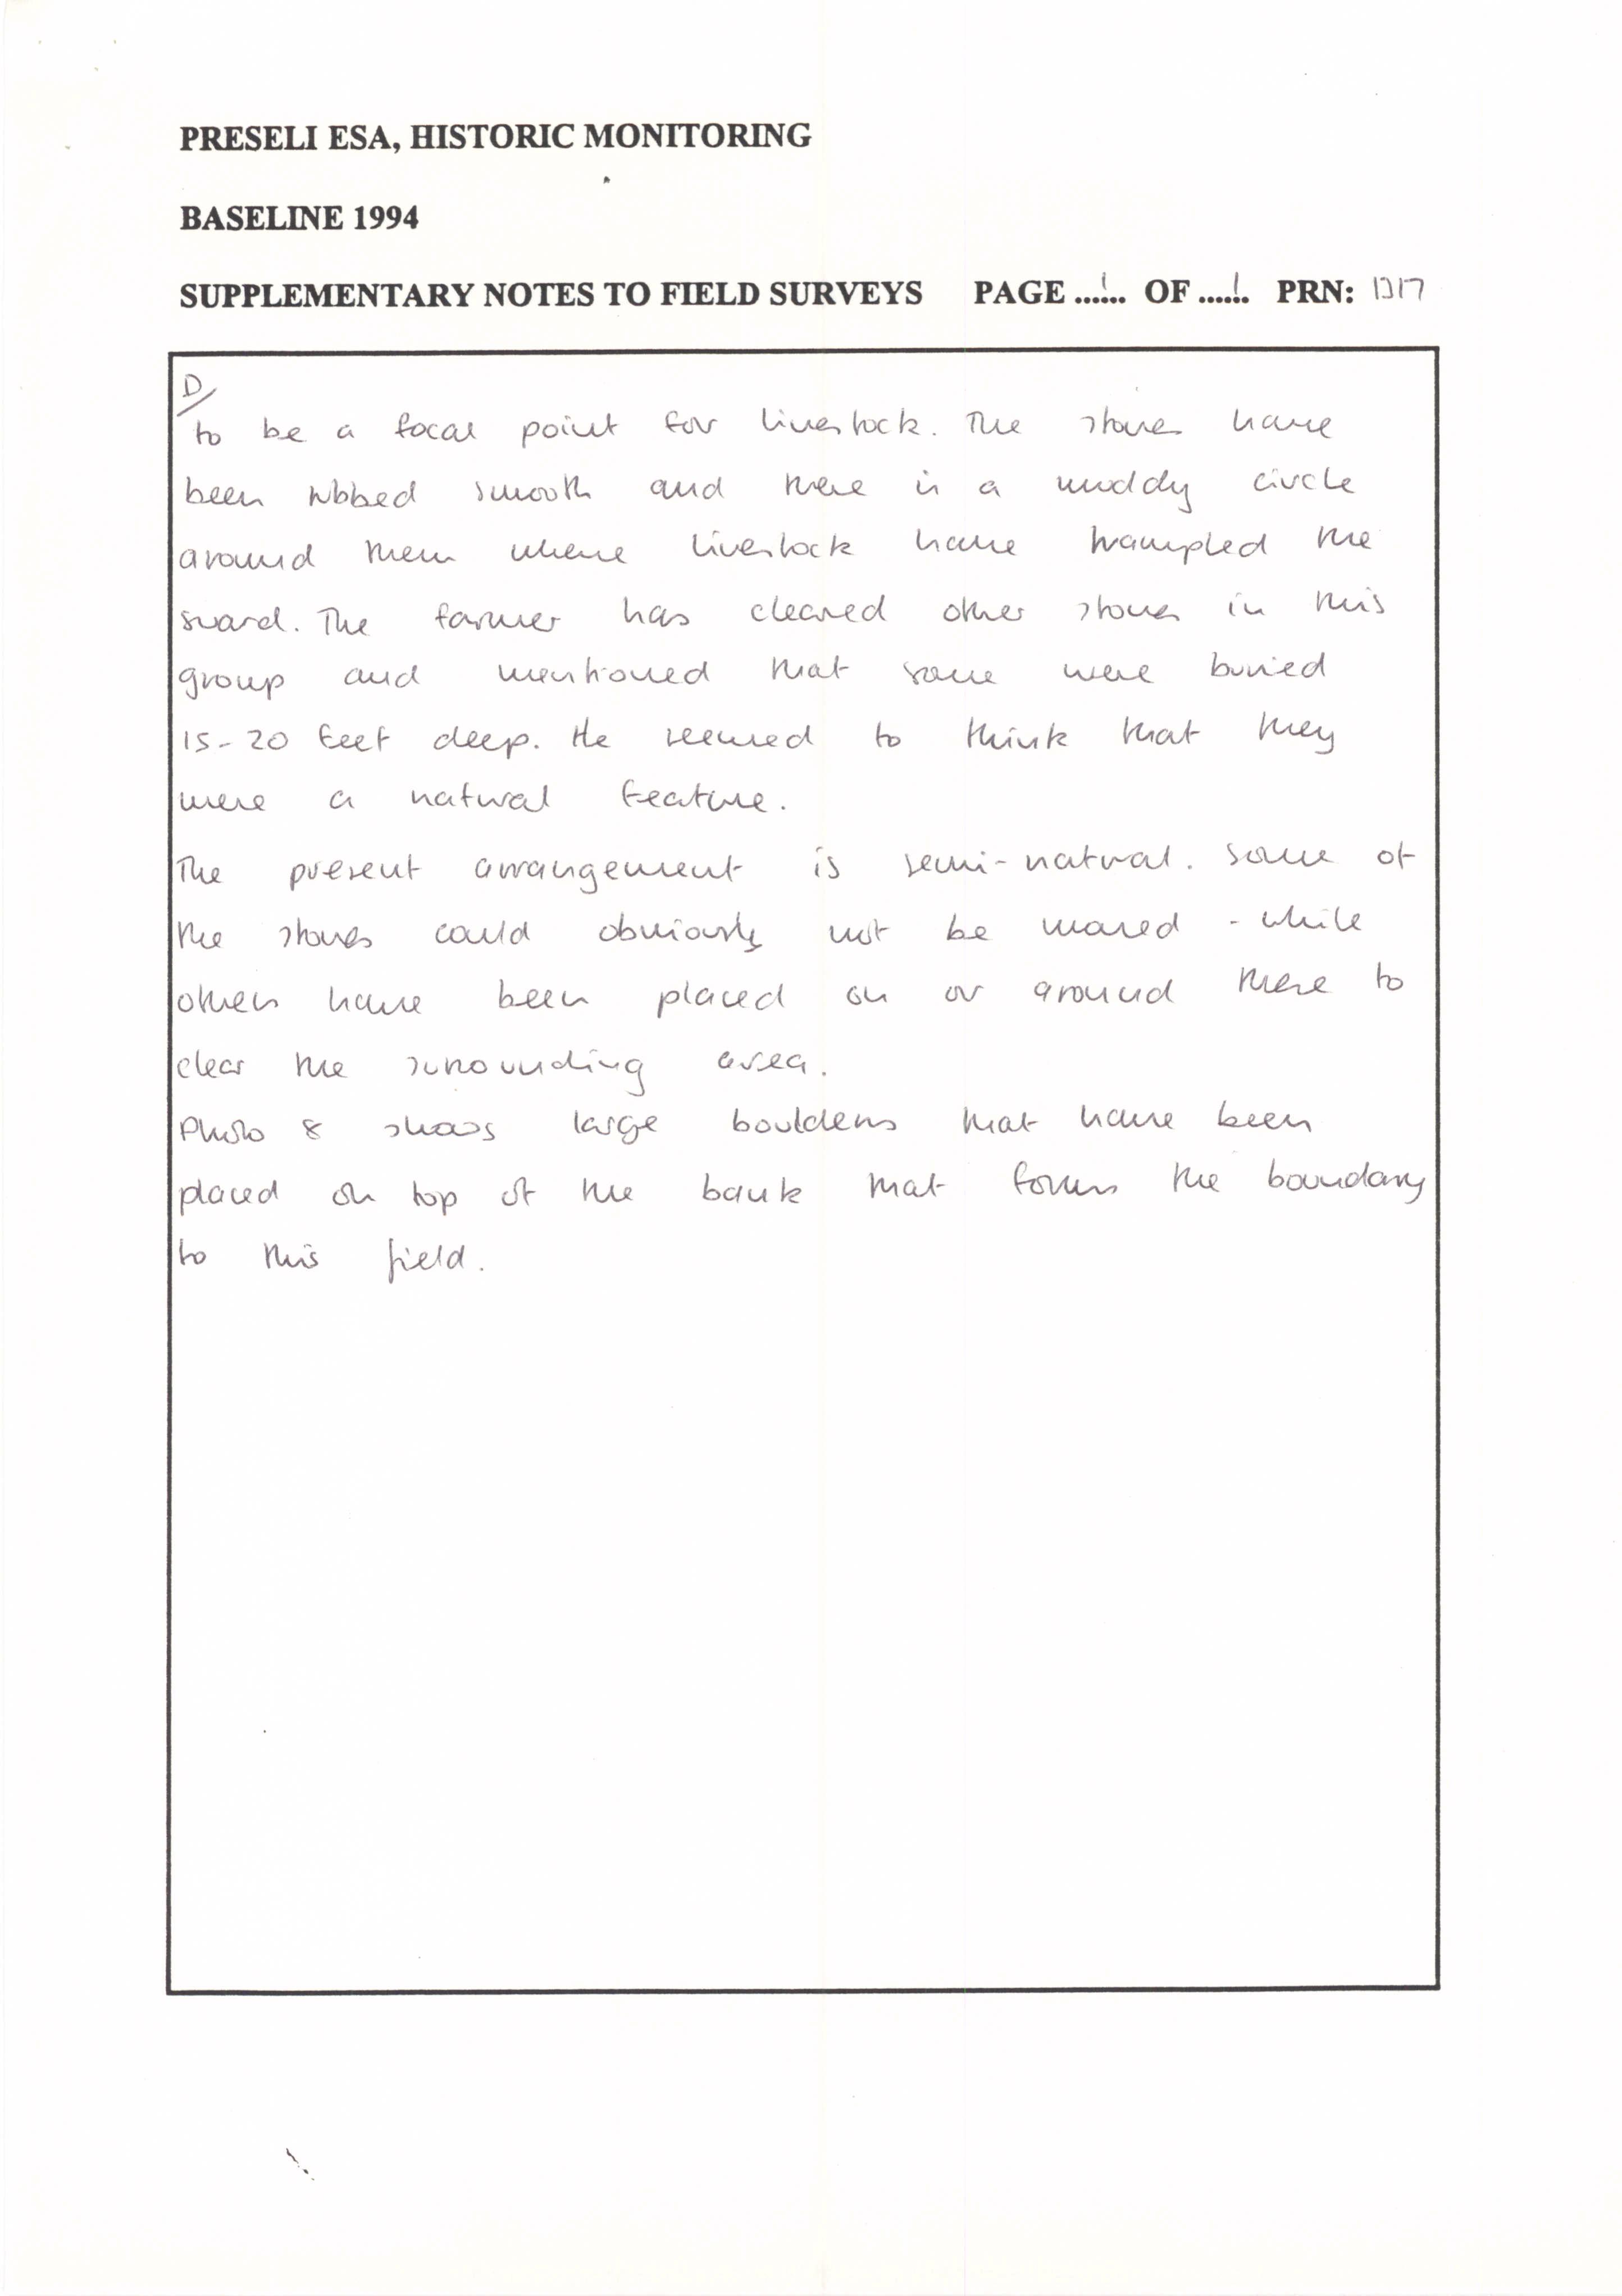 PRESELI ESA, HISTORIC MONITORING
BASELINE 1994
SUPPLEMENTARY NOTES TO FIELD SURVEYS PAGE ...1... OF ...1.. PRN:
D/
to be a focal point for livestock. The stones have
been rubbed smooth and there is a muddy circle
around them where livestock have trampled the
sward. The farmer has cleared other stones in this
group and mentioned that some were buried
15-20 feet deep. He seemed to think that they
were a natural feature.
The present arrangement is semi-natural. Some of
the stones could obviously not be moved - while
others have been placed on or around these to
clear the surrounding area.
Photo 8 shows large boulders that have been
placed on top of the bank that forms the boundary
to this field.